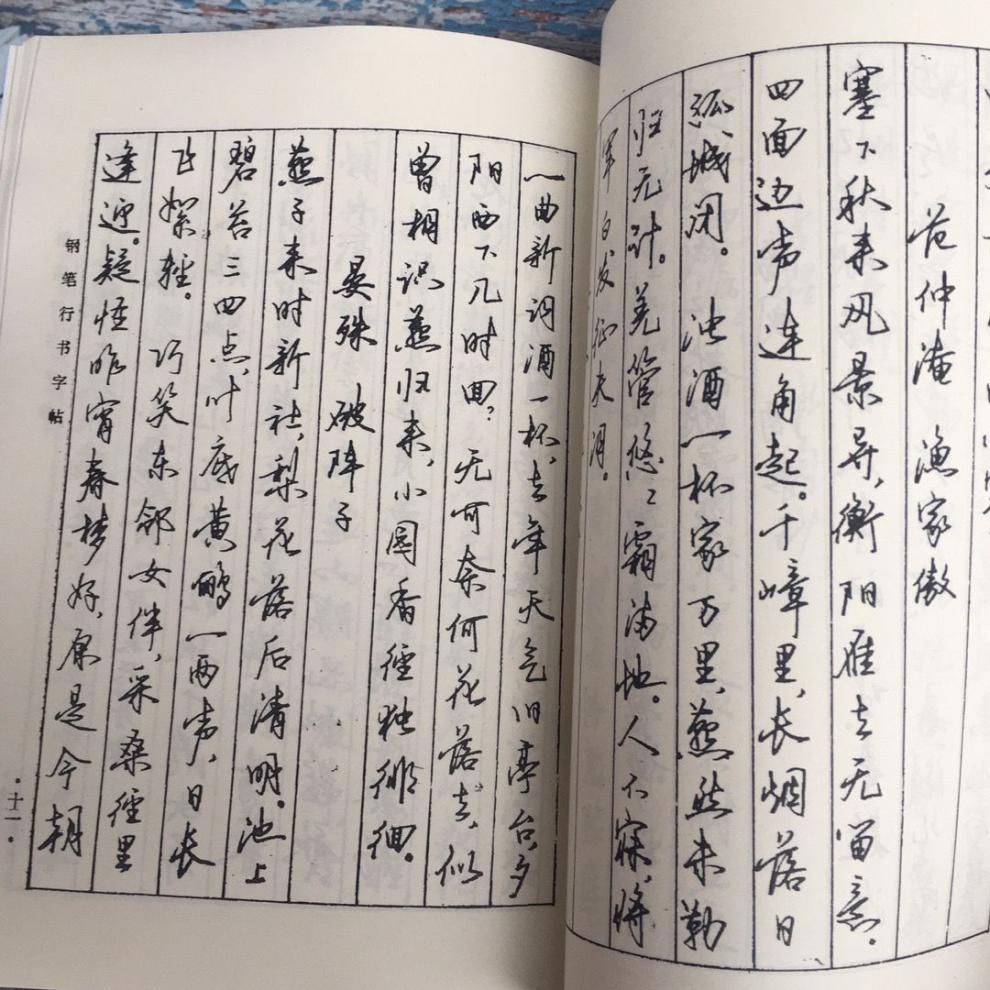 范仲淹 渔家傲
塞下秋来风景异,衡阳雁去无留意。
四面边声连角起。千嶂里,长烟落日
孤城闭。 浊酒一杯家万里,燕然未勒
归无计。羌管悠〻霜满地。人不寐,将
军白发征夫泪。
一曲新词酒一杯,去年天气旧亭台,夕
阳西下几时回? 无可奈何花落去,似
曾相识燕归来,小园香径独徘徊。
晏殊 破阵子
燕子来时新社,梨花落后清明。池上
碧苔三四点,叶底黄鹂一两声,日长
飞絮轻。 巧笑东邻女伴,采桑径里
逢迎。疑怪昨宵春梦好,原是今朝
钢笔行书字帖
·十一·